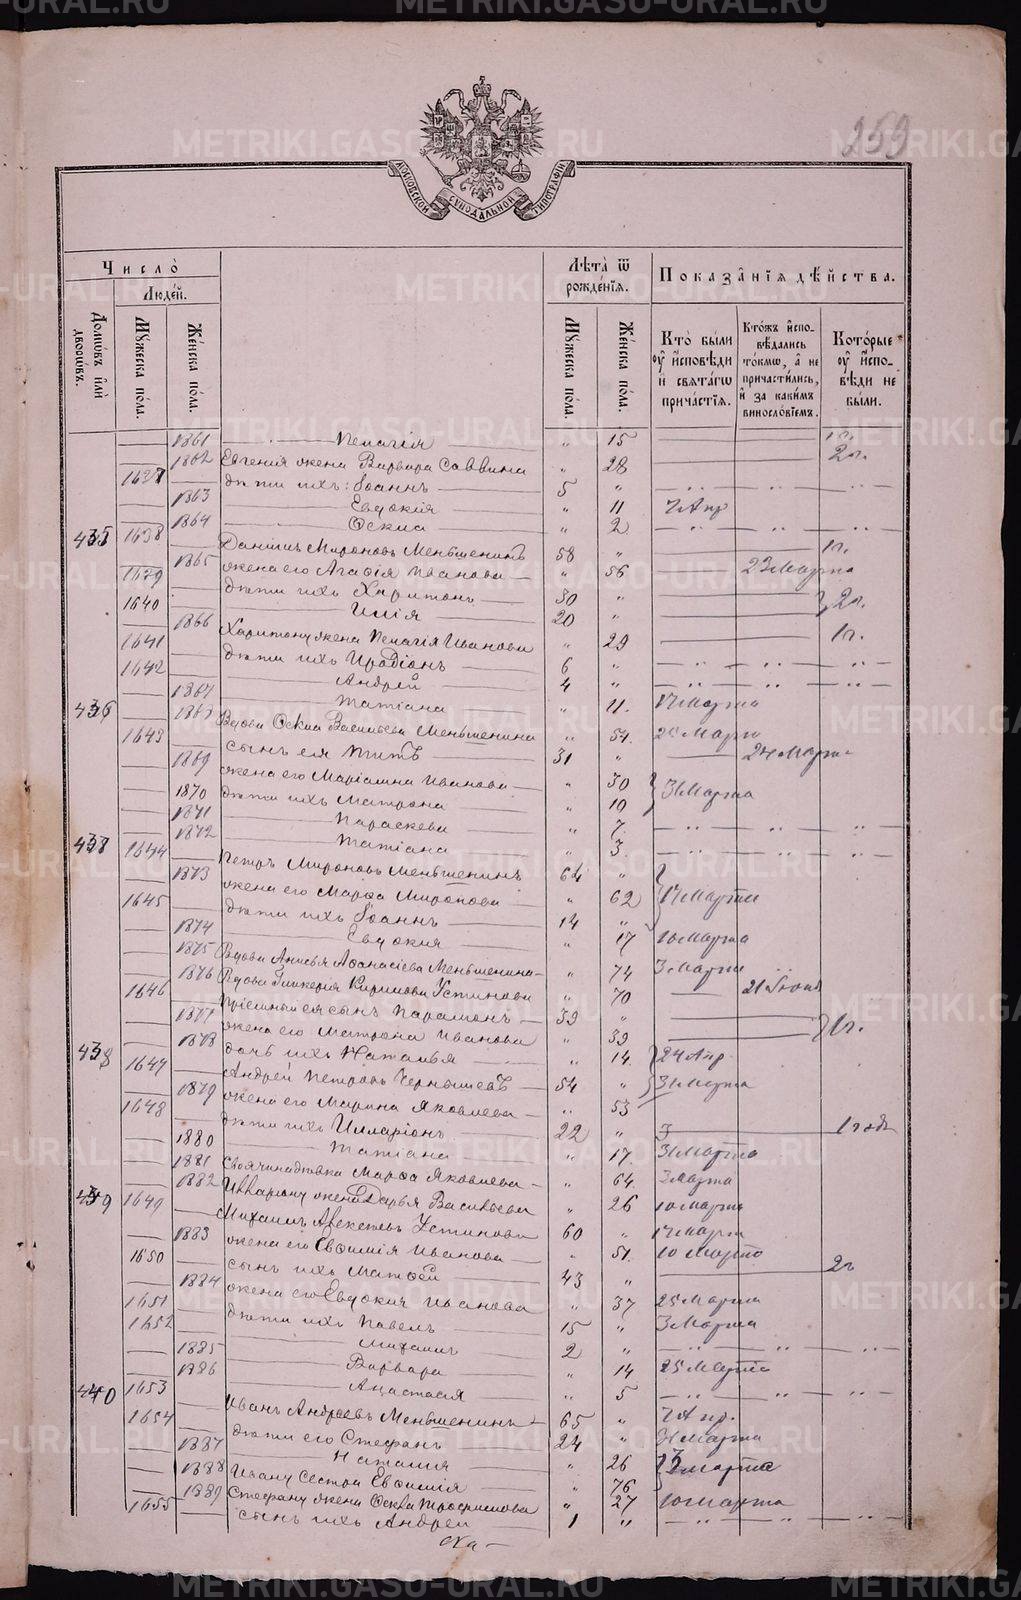 METRIKI.GASO-URAL.RU
МОСКОВСКОЙ СѴНОДАЛЬНОЙ ТИПОГРАФІИ
Число̀
Люде́й.
Домѡ́въ и҆лѝ дворѡ́въ.
Мꙋ́жеска по́ла.
Же́нска по́ла.
Лѣ̑та ѿ рожде́нїѧ.
Мꙋ́жеска по́ла.
Же́нска по́ла.
Показа̑нїѧ дѣ́йства.
Кто̀ бы́ли ᲂу҆ и҆́сповѣди и҆ свѧта́гѡ прича́стїѧ.
Кто́жъ и҆спо-вѣ́дались то́кмѡ, а҆ не причасти́лись, и҆ за каки́мъ винꙋсло́вїемъ.
Кото́рые ᲂу҆ и҆́спо-вѣди не бы́ли.
1861 Пелагія " 15
1862 Евгенія жена Варвара Саввина " 28 2 г.
1637 дѣти ихъ: Іоаннъ 5 "
1863 Евдокія " 11 7 Апр
1864 " 2
435 1638 Даніилъ Мироновъ Меньшенинъ 58 " 1 г.
1865 жена его Агафія Иванова " 56 23 Марта
1639 дѣти ихъ Харитонъ 30 "
1640 Илія 20 " 2 г.
1866 Харитону жена Пелагія Иванова " 29 1 г.
1641 дѣти ихъ Иродіонъ 6 "
1642 Андрей 4 "
1867 Татіана " 11. 17 Марта
436 1868 Вдова Васильева Меньшенина " 54. Марта
1643 сынъ ея Титъ 31 " 24 Марта
1869 жена его Маріамна Иванова " 30
1870 дѣти ихъ Матрона " 10 31 Марта
1871 Параскева " 7
1872 Татіана " 3
437 1644 Петръ Мироновъ Меньшенинъ 64 "
1873 жена его Марфа Миронова " 62 17 Марта
1645 дѣти ихъ Іоаннъ 14 "
1874 Евдокия " 17 10 Марта
1875 Вдова Анисья Афанасіева Меньшенина " 74 3 Марта
1876 Вдова Гликерія Кирилова Устинова " 70 21
1646 Пріемный ея сынъ Парамонъ 39 "
1877 жена его Матрона Иванова " 39 1 г.
1878 дочь ихъ Наталья " 14. 24 Апр.
438 1647 Андрей Петровъ Чернышевъ 54 " 31 Марта
1879 жена его Марина Яковлева " 53
1648 дѣти ихъ Илларіонъ 22 " 1 годъ
1880 Татіана " 17. 31 Марта
1881 Марфа Яковлева " 64. 3 Марта
1882 жена Дарья Васильева " 26 10 Марта
439 1649 Михаилъ Алексѣевъ Устиновъ 60 " 17 Марта
1883 жена его Евфимія Иванова " 51. 10 Марта
1650 сынъ ихъ Матфѣй 43 " 2 г
1884 жена его Евдокия Иванова " 37 25 Марта
1651 дѣти ихъ Павелъ 15 " 3 Марта
1652 Михаилъ 2 "
1885 Варвара " 14 25 Марта
1886 Анастасія " 5
440 1653 Иванъ Андреевъ Меньшенинъ 65 " 7 Апр.
1654 дѣти его Стефанъ 24 " 31 Марта
1887 Наталия " 26 Марта
1888 Ивану сестра Евфимія " 76
1889 Стефану жена Трофимова " 27 10 Марта
1655 сынъ ихъ Андрей 1 "